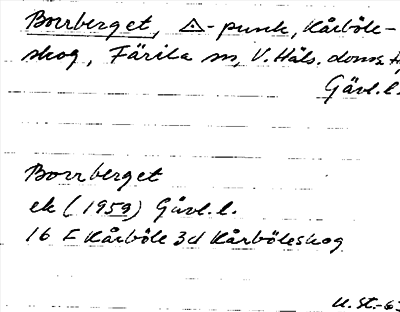 Borrberget, △-punk, Kårböle-
skog, Färila sn, V. Häls. doms.
Gävl. l.
Borrberget
ek (1959) Gävl. l.
16 F Kårböle 3d Kårböleskog
U. St. -63